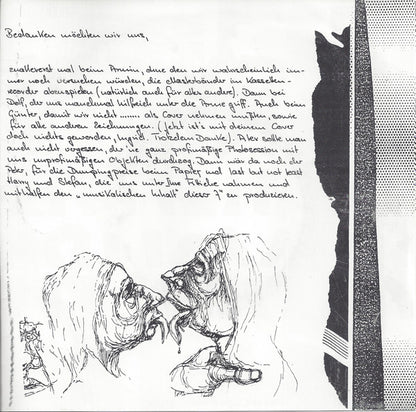 Bedanken möchten wir uns,
zuallererst mal beim Armin, ohne den wir wahrscheinlich im-
mer noch versuchen würden, die Masterbänder im Kassetten-
recorder abzuspielen (natürlich auch für alles andere). Dann bei
Dolf, der uns manchmal hilfreich unter die Arme griff. Auch beim
Günter, damit wir nicht ........ als Cover nehmen mußten, sowie
für alle anderen Zeichnungen. (Jetzt ist's mit deinem Cover
doch nichts geworden, Ingrid. Trotzdem Danke). Aber sollte man
auch nicht vergessen, der 'ne ganz profimäßige Photosession mit
uns unprofimäßigen Objekten durchzog. Dann wär da noch der
Peter, für die Dumpingpreise beim Papier und last but not least
Harry und Stefan, die uns unter ihre Fittiche nahmen und
mithalfen den „musikalischen Inhalt" dieser 7" zu produzieren.